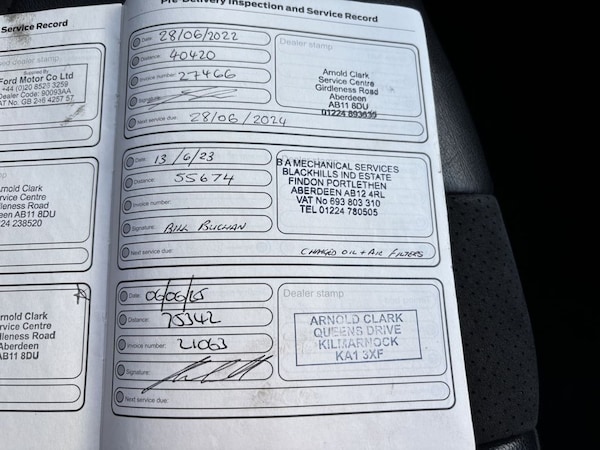 Service Record
Dealer stamp
Supplied By
Ford Motor Co Ltd
+44 (0)20 8526 3259
Dealer Code: 90093AA
VAT No. GB 246 4257 57
Arnold Clark
Service Centre
Girdleness Road
Aberdeen AB11 8DU
01224 238520
Arnold Clark
Service Centre
Girdleness Road
Aberdeen
AB11 8DU
Pre-Delivery Inspection and Service Record
Date: 28/06/2022
Distance: 40420
Invoice number: 27466
Signature:
Next service due: 28/06/2024
Dealer stamp
Arnold Clark
Service Centre
Girdleness Road
Aberdeen
AB11 8DU
Date: 13/6/23
Distance: 55674
Invoice number:
Signature: BILL BUCHAN
Next service due: CHANGED OIL + AIR FILTERS
B A MECHANICAL SERVICES
BLACKHILLS IND ESTATE
FINDON PORTLETHEN
ABERDEEN AB12 4RL
VAT No 693 803 310
TEL 01224 780505
Date: 06/06/25
Distance: 75342
Invoice number: 21063
Signature:
Next service due:
Dealer stamp
ARNOLD CLARK
QUEENS DRIVE
KILMARNOCK
KA1 3XF